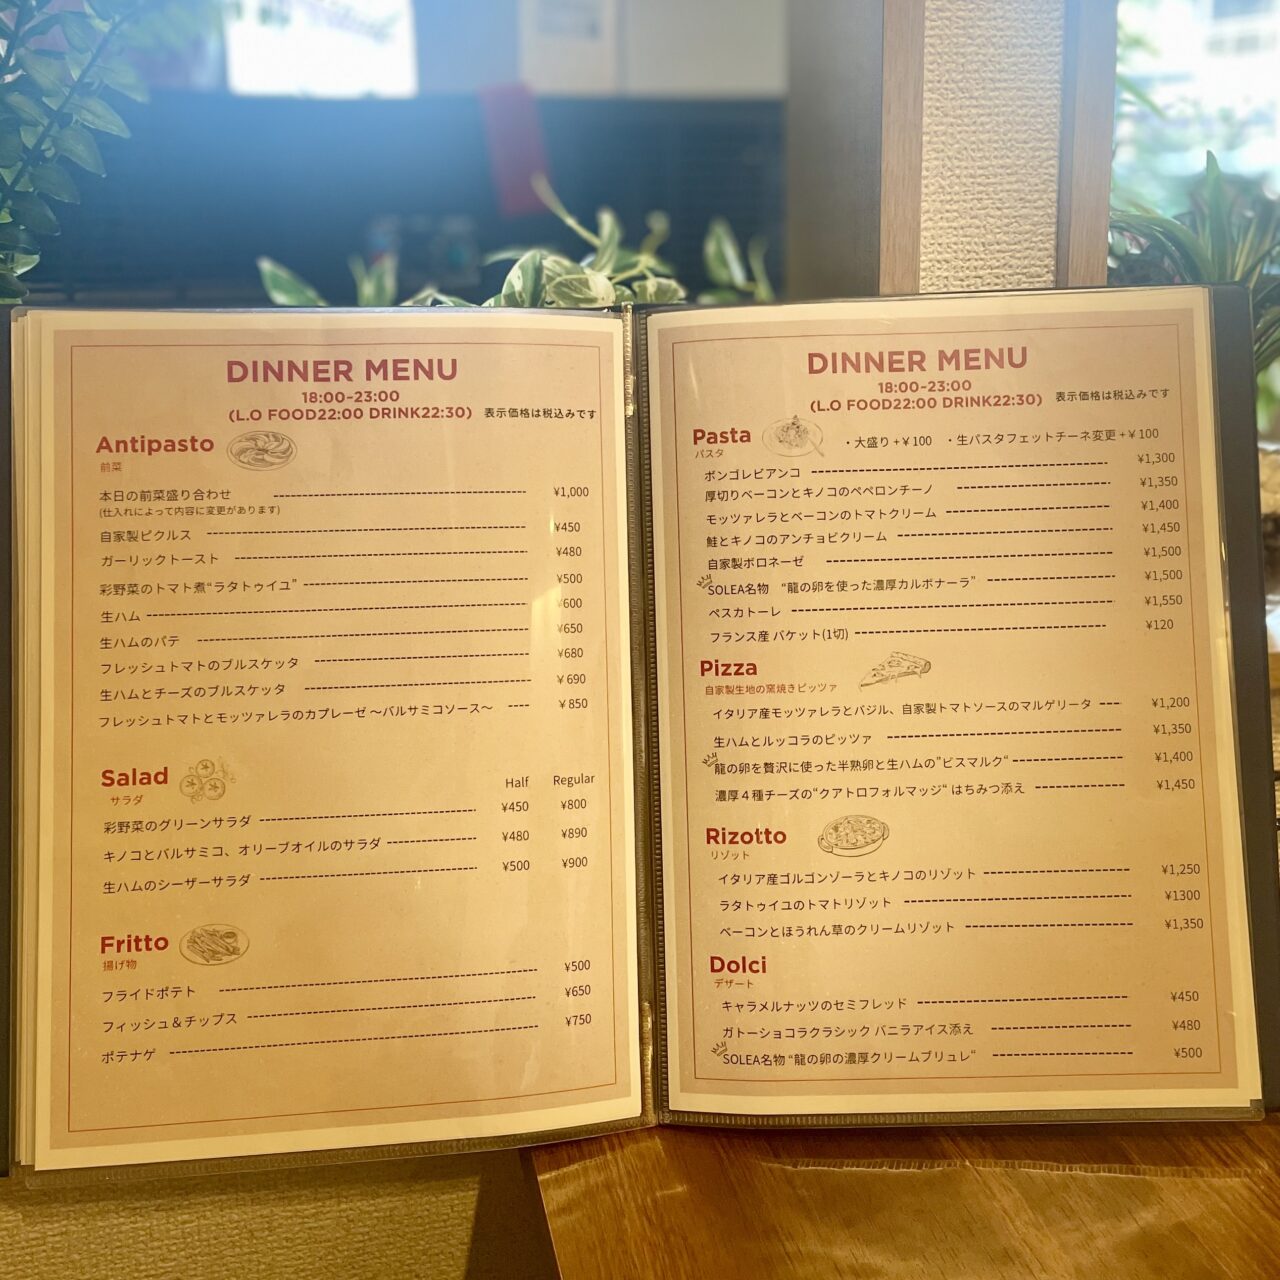 DINNER MENU
18:00~23:00
(L.O FOOD22:00 DRINK22:30) 表示価格は税込みです
Antipasto
前菜
本日の前菜盛り合わせ ¥1,000
(仕入れによって内容に変更があります)
自家製ピクルス ¥450
ガーリックトースト ¥480
彩野菜のトマト煮“ラタトゥイユ” ¥500
生ハム ¥600
生ハムのパテ ¥650
フレッシュトマトのブルスケッタ ¥680
生ハムとチーズのブルスケッタ ¥690
フレッシュトマトとモッツァレラのカプレーゼ ～バルサミコソース～ ¥850
Salad
サラダ
Half Regular
彩野菜のグリーンサラダ ¥450 ¥800
キノコとバルサミコ、オリーブオイルのサラダ ¥480 ¥890
生ハムのシーザーサラダ ¥500 ¥900
Fritto
揚げ物
フライドポテト ¥500
フィッシュ＆チップス ¥650
ポテナゲ ¥750
DINNER MENU
18:00~23:00
(L.O FOOD22:00 DRINK22:30) 表示価格は税込みです
Pasta
パスタ
・大盛り +¥100 ・生パスタフェットチーネ変更 +¥100
ボンゴレビアンコ ¥1,300
厚切りベーコンとキノコのペペロンチーノ ¥1,350
モッツァレラとベーコンのトマトクリーム ¥1,400
鮭とキノコのアンチョビクリーム ¥1,450
自家製ボロネーゼ ¥1,500
SOLEA名物 “龍の卵を使った濃厚カルボナーラ” ¥1,500
ペスカトーレ ¥1,550
フランス産 バケット(1切) ¥120
Pizza
自家製生地の窯焼きピッツァ
イタリア産モッツァレラとバジル、自家製トマトソースのマルゲリータ ¥1,200
生ハムとルッコラのピッツァ ¥1,350
龍の卵を贅沢に使った半熟卵と生ハムの”ビスマルク“ ¥1,400
濃厚４種チーズの“クアトロフォルマッジ“ はちみつ添え ¥1,450
Rizotto
リゾット
イタリア産ゴルゴンゾーラとキノコのリゾット ¥1,250
ラタトゥイユのトマトリゾット ¥1300
ベーコンとほうれん草のクリームリゾット ¥1,350
Dolci
デザート
キャラメルナッツのセミフレッド ¥450
ガトーショコラクラシック バニラアイス添え ¥480
SOLEA名物 “龍の卵の濃厚クリームブリュレ“ ¥500